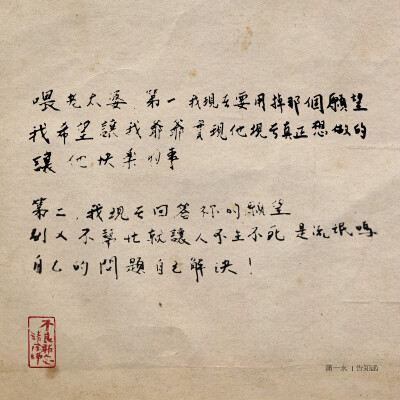 喂 老太婆 第一 我現在要用掉那個願望
我希望讓我爺爺實現他現在真正想做的
讓他快樂的事
第二, 我現在回答你的願望
別人不幫忙就讓人不生不死 是流氓嗎
自己的問題自己解決!
不良執念
清除師
蒲一永 | 告知函